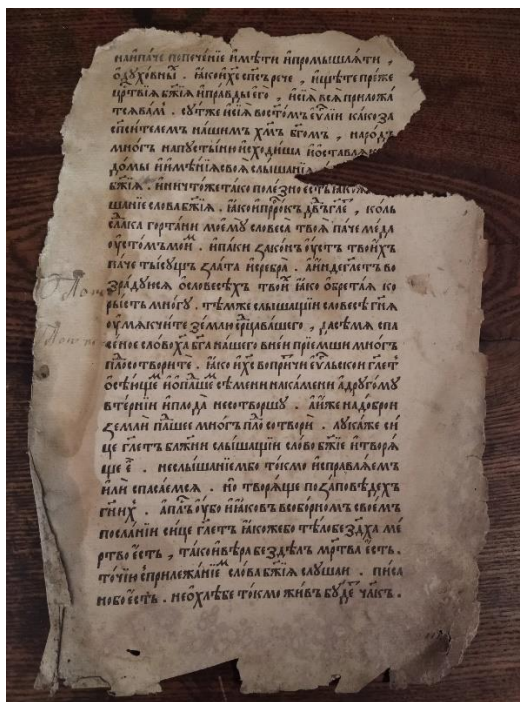 наипаче попечение имѣти ипромышляти ,
одуховны́ . якоих҃е сп҃съ рече , ищѣте преже
цр҃твия бж҃ия иправды его , исия вся приложа
тсявам̾ . сутже исия востомъ еѵ҃лии како за
спсителемъ нашимъ хм҃ъ бг҃омъ , народъ
многъ напустыню исходиша иоставляю
домы иимѣния своя слышания
бж҃ия . иничтоже тако полезно есть якоже
шание слова бж҃ия . якоипрⷪ҇ркъ дв҃ъ гл҃е , коль
слⷣака гортани моему словеса твоя паче меда
оустомъ мои̾ . ипаки законъ оустъ твоихъ
паче тысущъ злата исребра̀ . аиндегл҃етъ во
зрадуися ословесѣхъ твои́ яко обретая ко
рысть многу . тѣмже слышащии словесе г҃ня
оумякчите землю ср҃цавашего , дасѣмя спа
сеное слово х҃а б҃га нашего вней приемши многъ
плⷪ҇ сотворите . яко иx҃ъ вопричи еѵ҃льскои гл҃етъ
осѣющⷨе иопаⷣше сѣмени накамени адругому
втернии иплода̀ несотворшу . аиже надоброи
земли паⷣшее многъ плⷪ҇ сотвори̾ . лукаже си
це гл҃етъ бл҃жени слышащии слово бж҃ие итворя
ще е̾ . неслышаниембо токмо исправляем
или спасаемся . но творяще позаповѣдехъ
г҃них̾ . апл҃ъ оубо ияковъ всоборномъ своемъ
послании сице гл҃етъ якожебо тѣло без дх҃а ме
ртво есть , тако ивѣра без дѣлъ мр҃тва есть .
точию сприлежаниеⷨ слова бж҃ия слушаи . писа
нобо есть . неохлѣбе токмо живъ буде̾ чл҃къ .